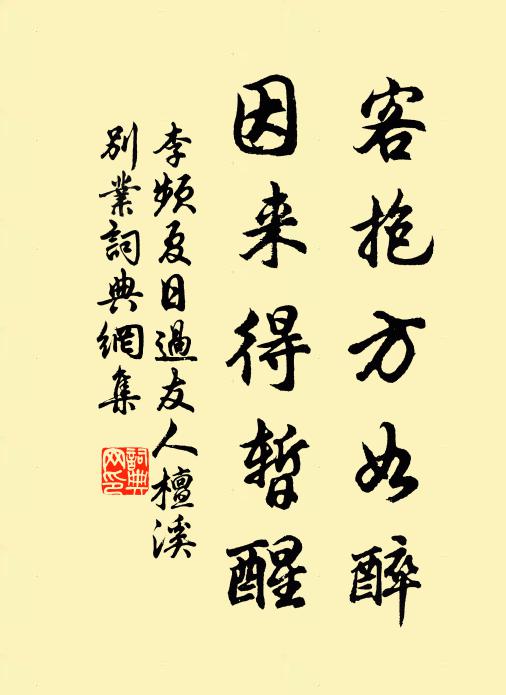 客抱方如醉
因来得暂醒
李频夏日過友人檀溪
别業詞典網集
詞典
网印